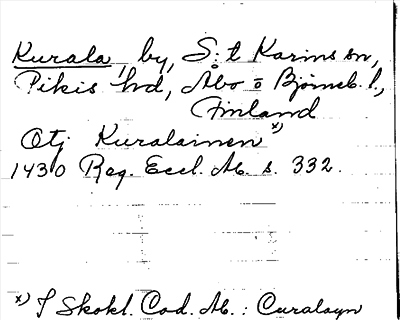 Kurala, by, S:t Karins sn,
Pikis hd, Åbo o Björneb. l.,
Finland
Otj Kuralainen x)
1430 Reg. Eccl. Åb. s. 332.
x) I Skokl. Cod. Åb.: Curalayn